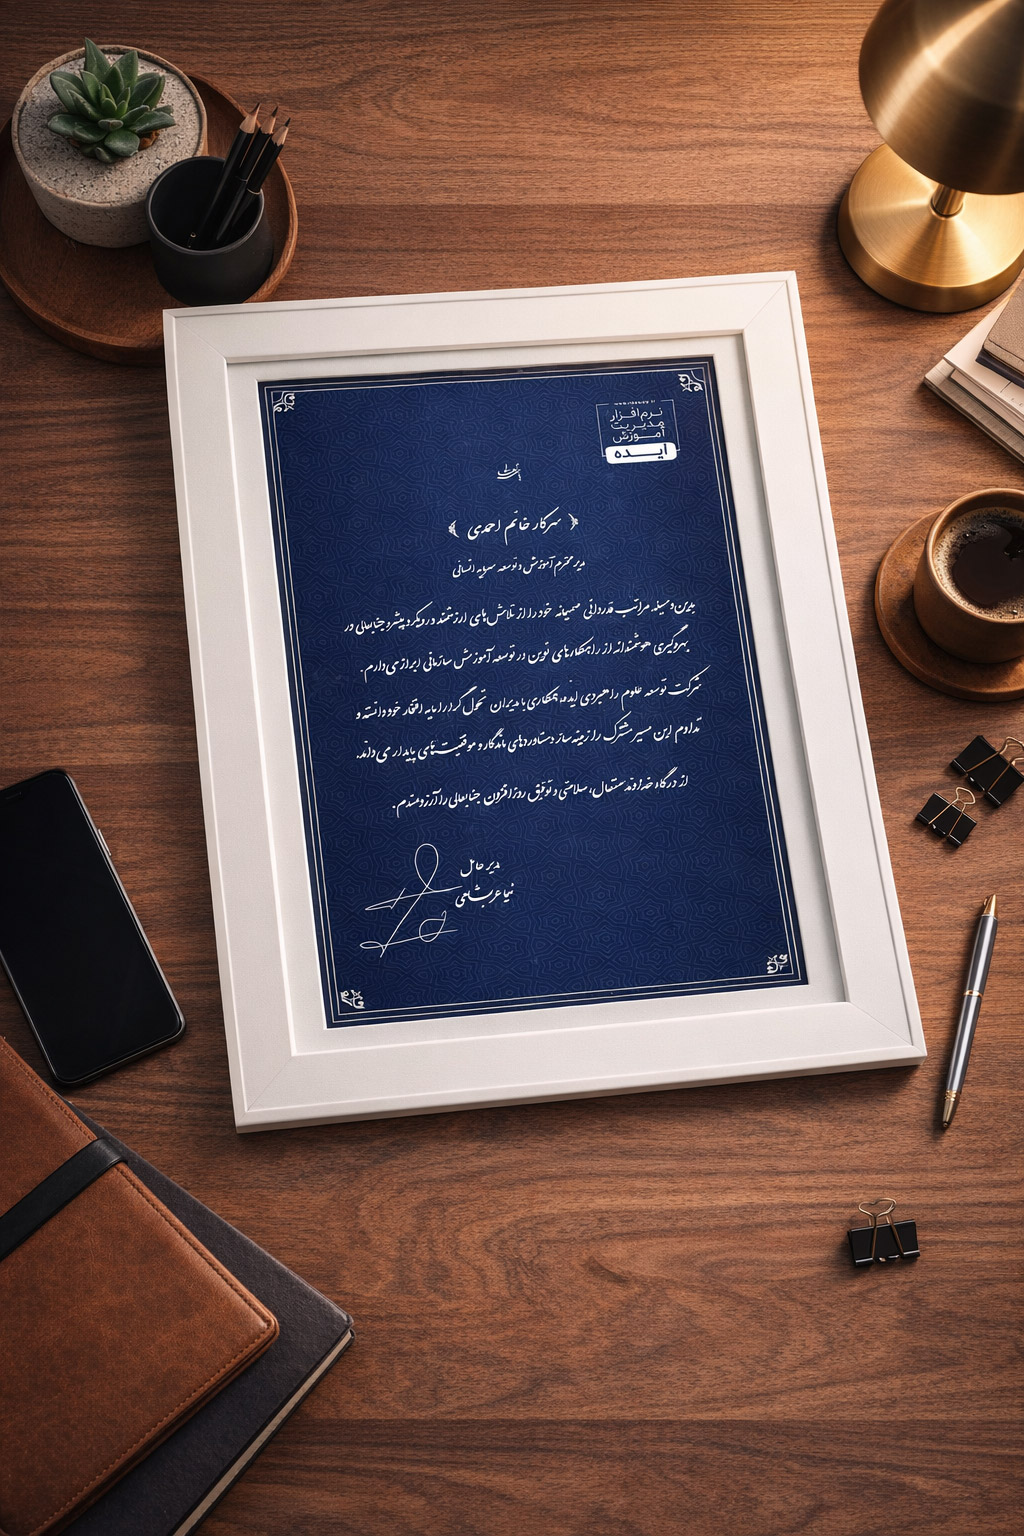 نرم‌افزار
مدیریت
آموزش
ایده
سرکار خانم احمدی
مدیر محترم آموزش و توسعه سرمایه انسانی
بدین‌وسیله مراتب قدردانی صمیمانه خود را از تلاش‌های ارزشمند و رویکرد پیشرو جنابعالی در
بهره‌گیری هوشمندانه از راهکارهای نوین در توسعه آموزش سازمانی ابراز می‌دارم.
شرکت توسعه علوم راهبردی ایده، همکاری با مدیران تحول‌گرا را مایه افتخار خود دانسته و
تداوم این مسیر مشترک را زمینه‌ساز دستاوردهای ماندگار و موفقیت‌های پایدار می‌داند.
از درگاه خداوند متعال، سلامتی و توفیق روزافزون جنابعالی را آرزومندم.
مدیر عامل
نیما عرب‌شاهی